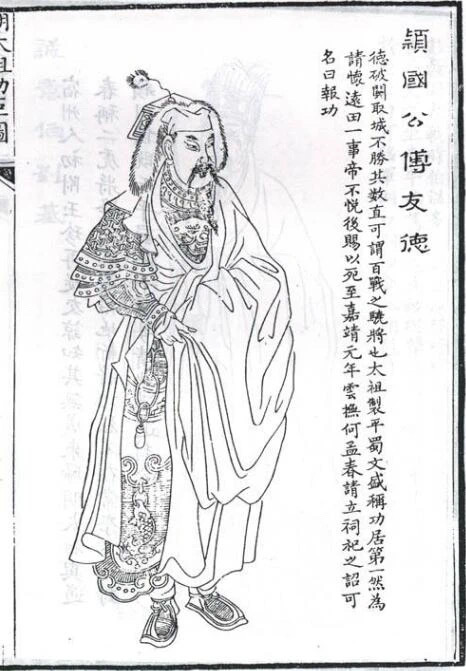 穎國公傅友德
德破關取城不勝其数直可謂百戰之驍將也太祖製平蜀文盛稱功居第一然為
請懷遠田一事帝不悅後賜以死至嘉靖元年雲撫何孟春請立祠祀之詔可
名曰報功
明太祖功臣圖